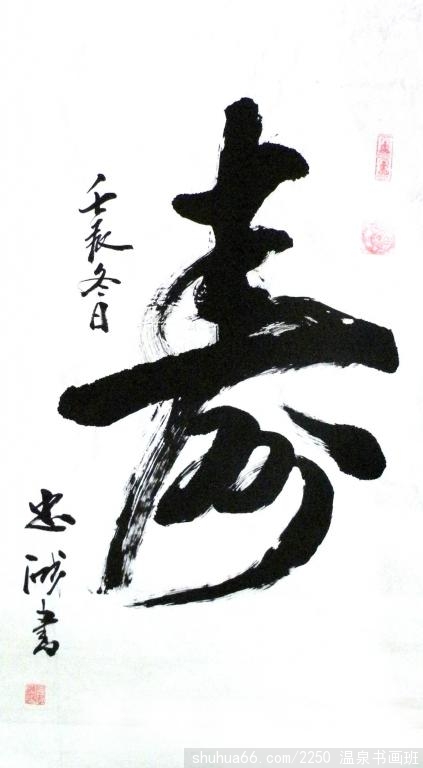 寿
壬辰冬日
忠诚书
shuhua66.com/2250 温泉书画班